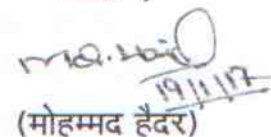 19/1/17
(मोहम्मद हैदर)